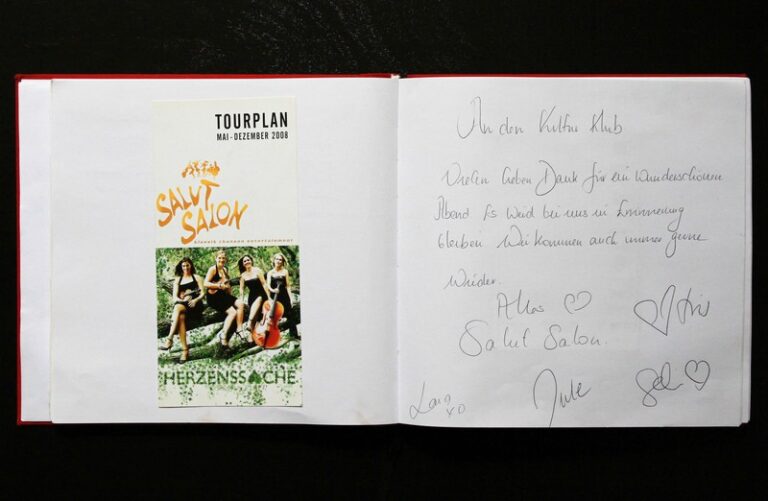 TOURPLAN
MAI - DEZEMBER 2008
SALUT
SALON
klassik chanson entertainment
HERZENSSACHE
An den Kultur Klub
Vielen lieben Dank für ein wunderschönen
Abend Es Weid bei uns in Erinnerung
bleiben Wei kommen auch immer gerne
Weider.
Alles ♡
Salut Salon.
♡ Iris
Jule
♡